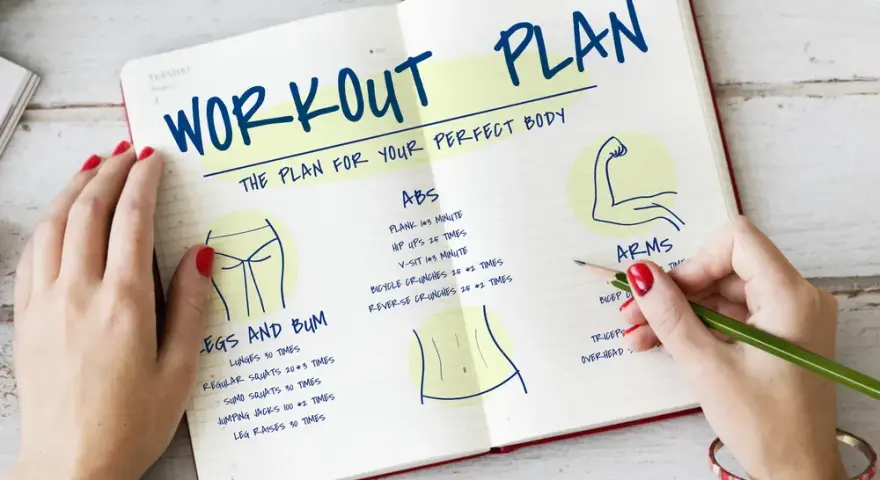 TUESDAY
WORKOUT PLAN
THE PLAN FOR YOUR PERFECT BODY
LEGS AND BUM
LUNGES 30 TIMES
REGULAR SQUATS 20*3 TIMES
SUMO SQUATS 30 TIMES
JUMPING JACKS 100 *2 TIMES
LEG RAISES 30 TIMES
ABS
PLANK 1*3 MINUTE
HIP UPS 25 TIMES
V-SIT 1*3 MINUTE
BICYCLE CRUNCHES 25 *2 TIMES
REVERSE CRUNCHES 25 *2 TIMES
ARMS
BICEP
TRICEPS
OVERHEAD